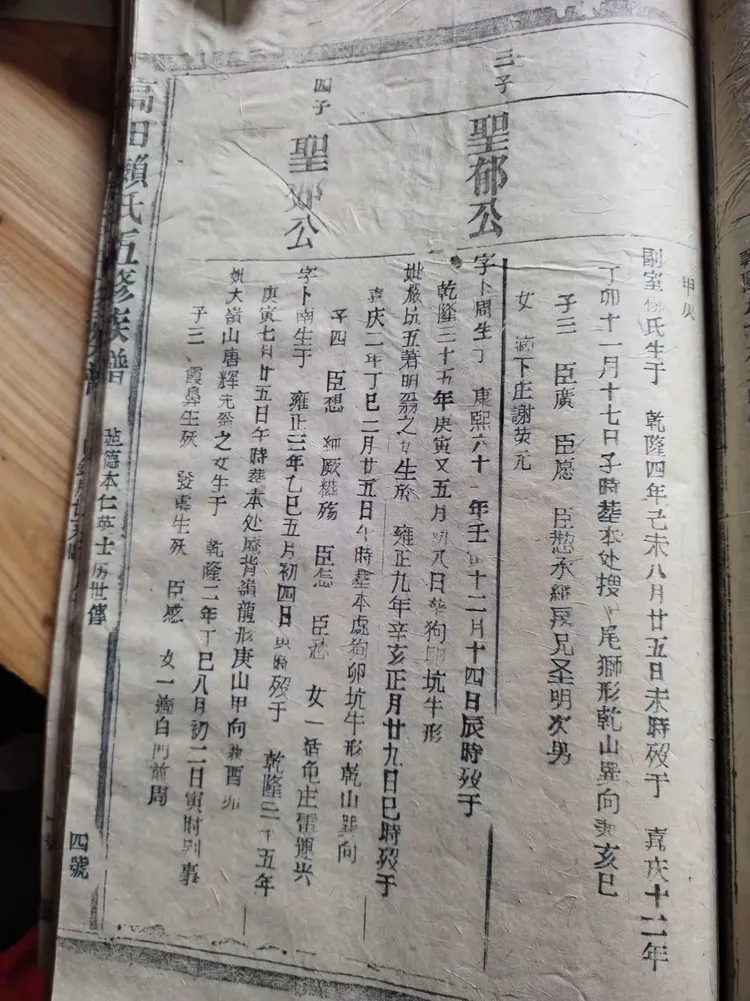 甲庚
副室 氏生于 乾隆四年己未八月廿五日未時歿于 嘉庆十二年
丁卯十一月十七日子時葬本处搜 尾獅形乾山巽向兼亥巳
子三 臣廣 臣愿 臣愸承繼長兄圣明次男
女 適下庄謝
三子
聖郁公
字卜周生于 康熙六十一年壬寅十二月十四日辰時歿于
乾隆三十五年庚寅又五月初八日葬狗卵坑牛形
妣嚴坑五著明翁之女生於 雍正九年辛亥正月廿九日巳時歿于
嘉庆二年丁巳二月廿五日午時葬本處狗卵坑牛形乾山巽向
子四 臣想 細厥 殇 臣怎 臣 女一适龟庄雷運兴
四子
聖 公
字卜南生于 雍正三年乙巳五月初四日寅時歿于 乾隆三十五年
庚寅七月廿五日午時葬本处庵背嶺龍形庚山甲向兼酉卯
妣大嶺山唐輝先翁之女生于 乾隆二年丁巳八月初二日寅时别事
子三 霞鼻生歿 發 生歿 臣感 女一適白門前周
高田賴氏五修族譜
德本仁英士历世傳
四號